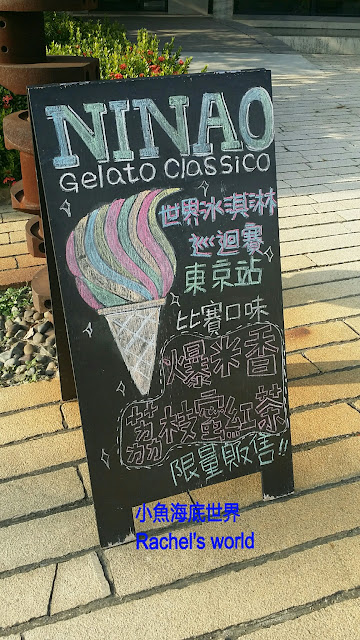 NINAO
Gelato Classico
世界冰淇淋
巡迴賽
東京站
比賽口味
爆米香
荔枝蜜紅茶
限量販售!!
小魚海底世界
Rachel's world